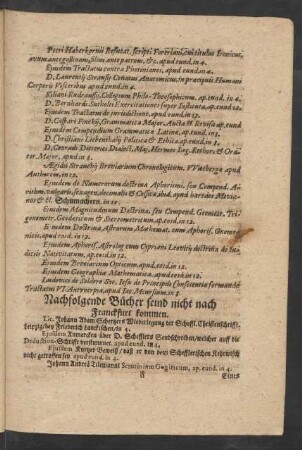 Petri Haberkornii Refutat. scripti
apud eund. in 4.
Ejusdem Tractatus contra Photinianos, apud eund. in 4.
D. Laurentij Straussij Conatus Anatomicus, in præcipuis Humani
Corporis Visceribus apud eund. in 4.
Collegium Philo-Theosophicum, ap. eund. in 4.
D. Bernhardi Sutholt Exercitationes super Instituta, ap. eund. in
Ejusdem Tractatus de apud eund. in 12.
D. Caspari Finckij Grammatica Major, Aucta & Revisa ap. eund.
Ejusdem Compendium Grammaticæ Latinæ, ap. eund. in 8.
D. Christiani Liebenthalij Politica & Ethica, ap. eund. in
D. Conradi Dieterici Dialect. Maj. Hermes Log. Rethor. & Ora-
tor. Major, apud in 8.
Ægidi Strauchij Breviarium Chronologicum, VVitteberga apud
in 12.
Ejusdem de Numerorum doctrina Aphorismi, seu Compend. A-
rithm. vulgaris, sexagen. decimalis & Cossica ibid. apud hæredes Mevia-
nos & El. Schumachern, in 12.
Ejusdem Magnitudinum Doctrina, seu Compend. Geometr. Tri-
gonometr. Geodaticum & Stereometricum, apud eosd. in 12.
Ejusdem Doctrina Astrorum Mathemat. cum Aphorism. Gnomo-
nicis, apud eosd. in 12.
Ejusdem Aphorism. Astrolog. cum Cypriani Leovitij doctrina de Iu-
diciis Nativitatum, ap. eosd. in 12.
Ejusdem Breviarium Opticum, apud eosd. in 12.
Ejusdem Geographia Mathematica, apud eosd. in 12.
Ludovici de Scildere Soc. Iesu de Principiis Conscientiæ formandæ
Tractatus VI. Antverpia, apud Iac. Meursium in 8.
Nachfolgende Bücher seind nicht nach
Franckfurt kommen.
Lic. Johann Adam Schertzers Widerlegung der Scheffl.
in 4.
Ejusdem Anmercken über D. Schefflers Sendschreiben/ welcher auff die
Deduction-Schrifft verstummet. apud eund. in 4.
Ejusdem Kurtzer Beweiß/ daß er von dem Schefflerischen Kehrwisch
nicht getroffen sey apud eund. in 4.
Johann Andreä Scrutinium ap. eund. in 4.
Eines